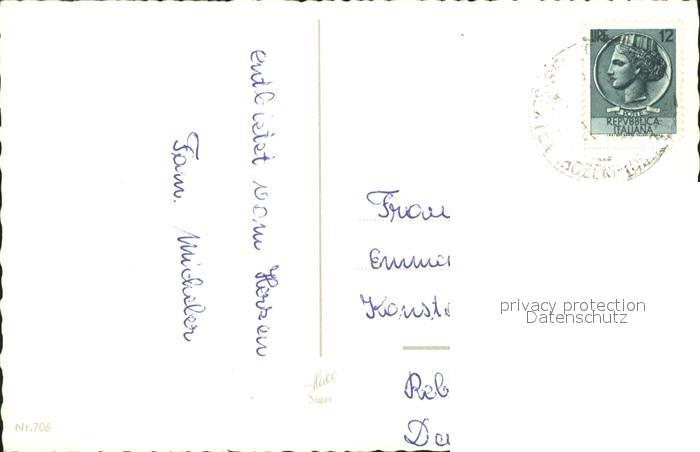 entbietet vom Herzen
Fam. Michaeler
Frau
Emma
Konst
Reb
Da
LIRE 12
POSTE
REPVBBLICA
ITALIANA
privacy protection
Datenschutz
Super
Nr.706